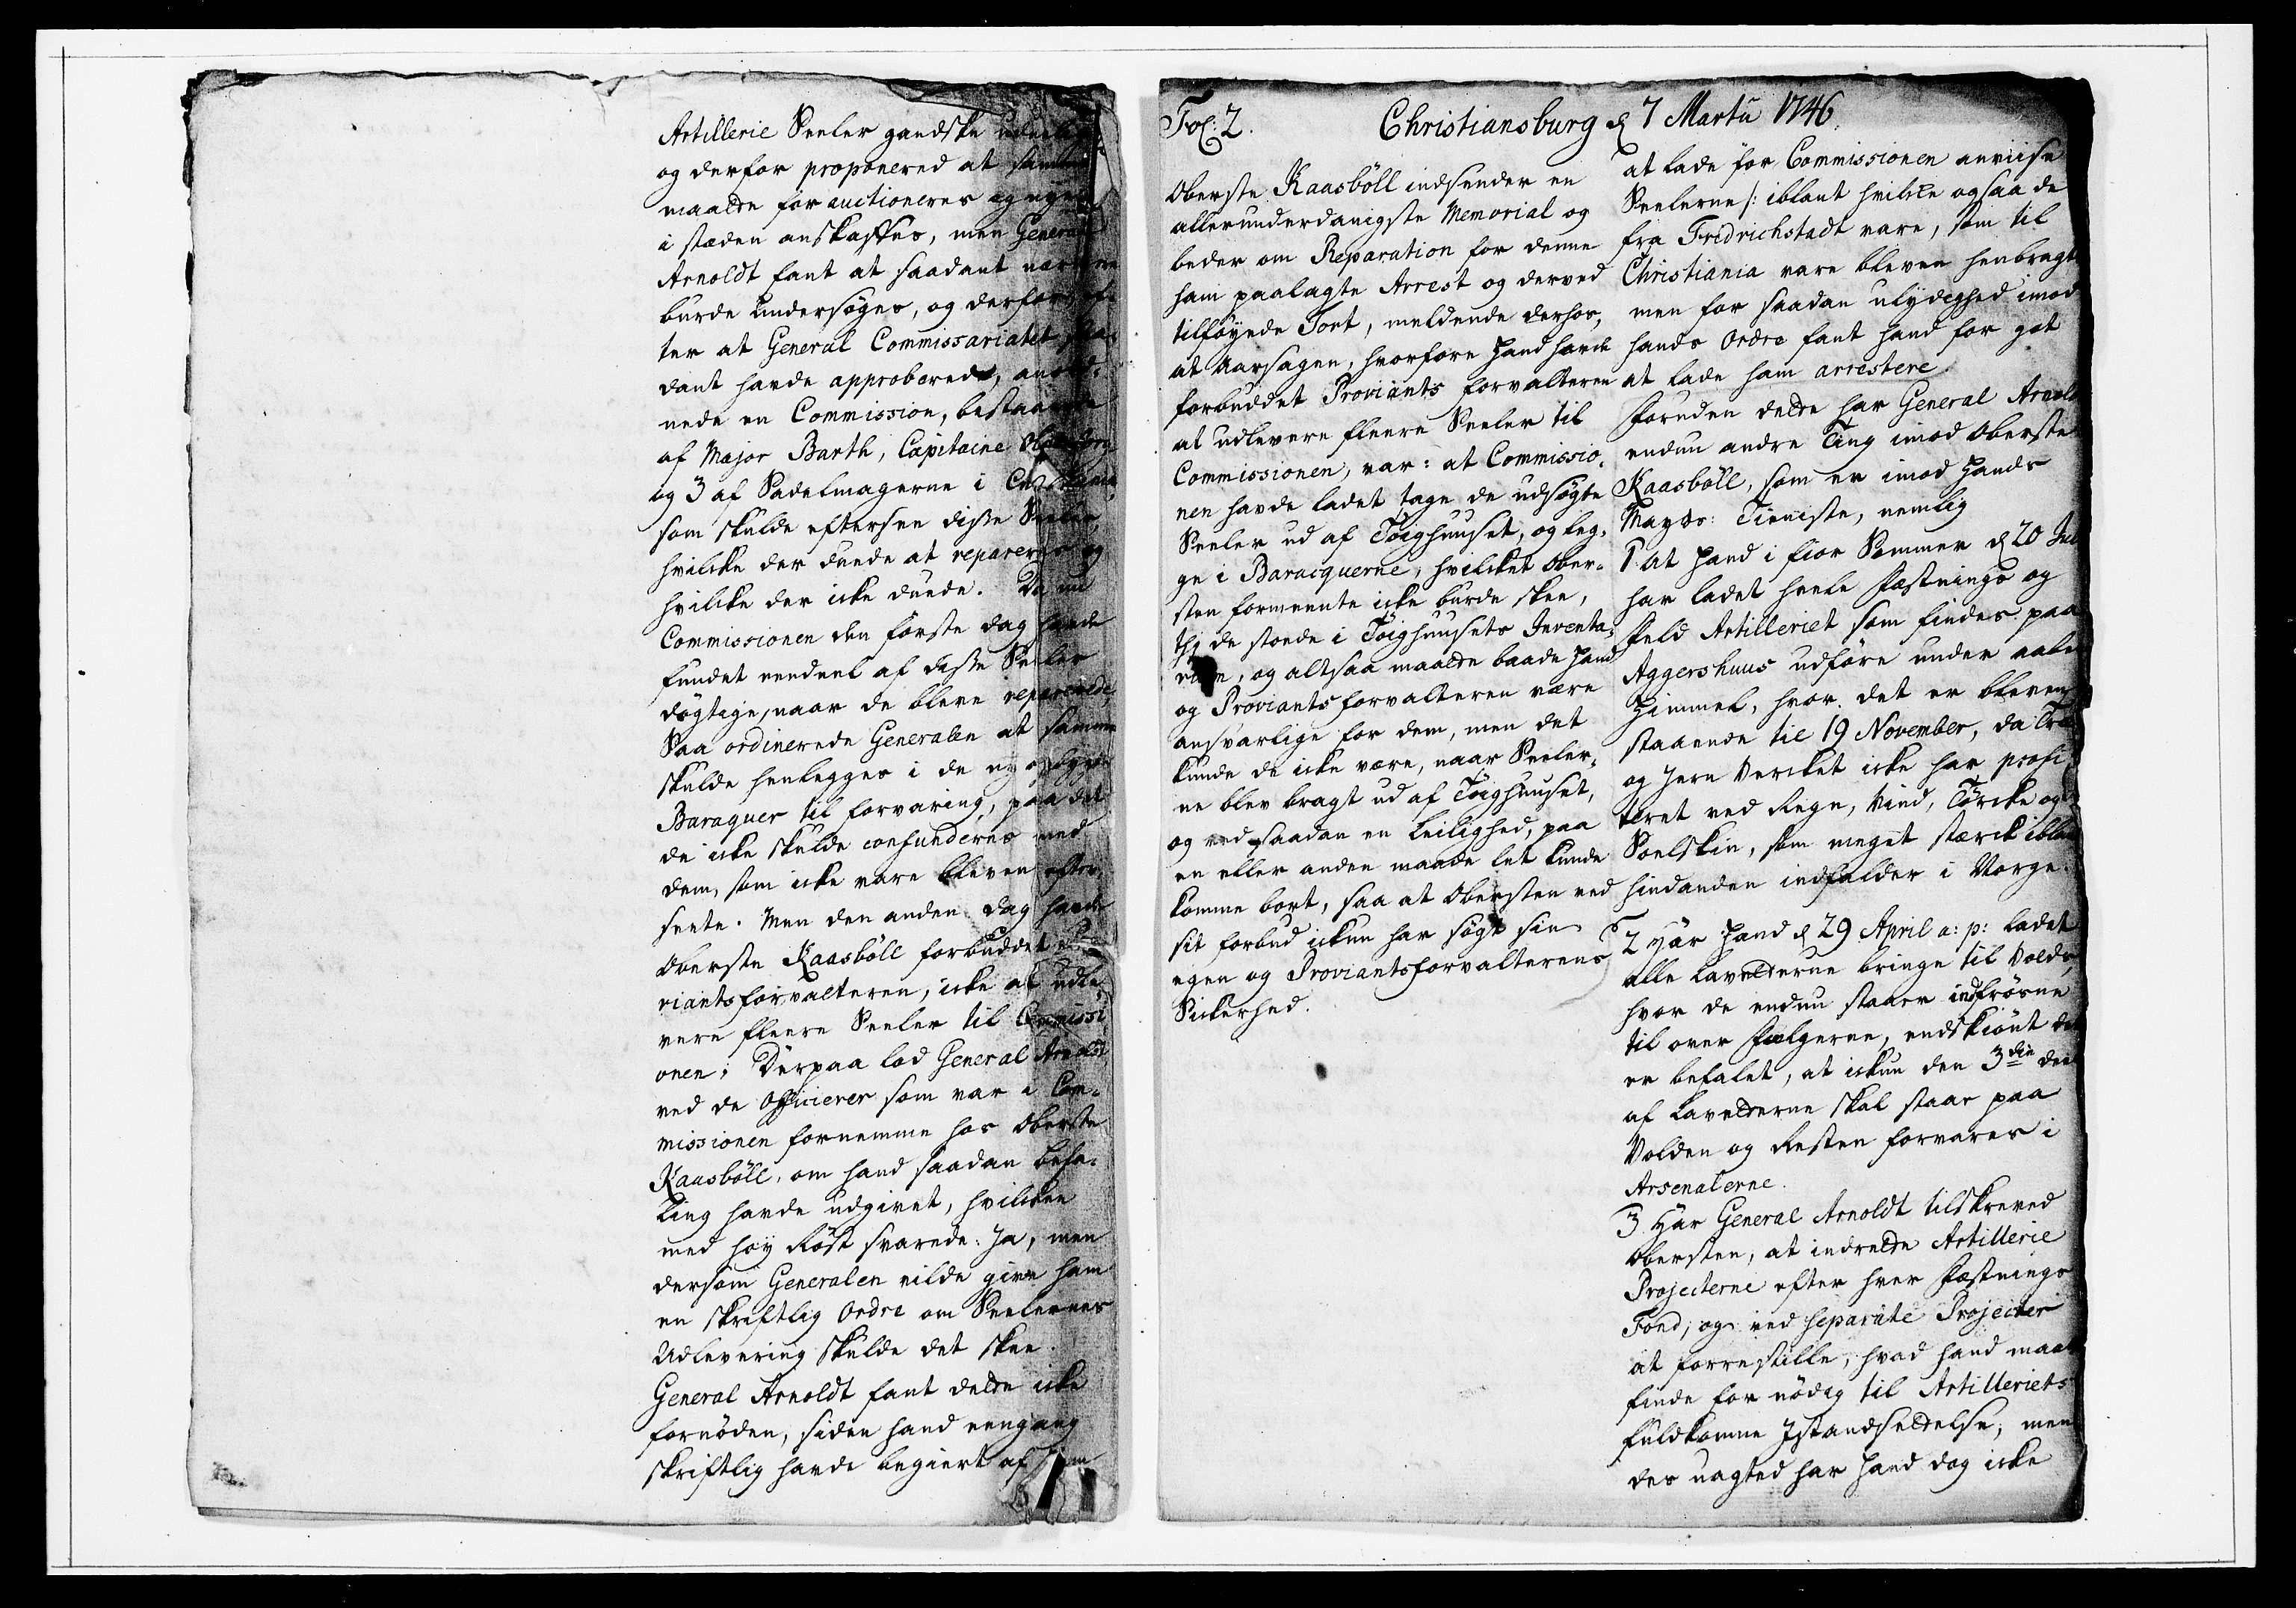 Artillerie Seeler gandske udueligе
og derfor proponered at samme
maatte for auctioneres og nye
i stæden anskaffes, men General
Arnoldt fant at saadant nærmere
burde undersøges, og derfor, ef-
ter at General Commissariatet saa-
dant havde approberede, anord-
nede en Commission, bestaaende
af Major Barth, Capitaine
og 3 af Sadelmagerne i Christiania,
som skulde eftersee disse Seeler,
hvilcke der duede at repareres og
hvilcke der icke duede. Da nu
Commissionen den første dag havde
fundet eendeel af disse Seeler
døgtige, naar de bleve reparerede,
Saa ordinerede Generalen at samme
skulde henlegges i de ny opbygte
Baraquer til forvaring, paa det
de icke skulde confunderes med
dem, som icke vare bleven efter-
seete. Men den anden dag havde
Oberste Kaasböll forbuddet Pro-
viantsforvalteren, icke at udle-
vere fleere Seeler til Commissi-
onen; Derpaa lod General Arnoldt
ved de Officierer som var i Com-
missionen fornemme hos Oberste
Kaasböll, om hand saadan befa-
ling havde udgivet, hvilcken
med høy Røst svarede: Ja, men
dersom Generalen vilde give ham
en skriftlig Ordre om Seelernes
Udlevering skulde det skee.
General Arnoldt fant dette icke
fornøden, siden hand eengang
skriftlig havde begiert af ham
Fol: 2.
Christiansburg d 7 Martii 1746.
Oberste Kaasböll indsender en
allerunderdanigste Memorial og
beder om Reparation for denne
ham paalagte Arrest og derved
tilføyede Tort, meldende derhos,
at Aarsagen, hvorfore hand havde
forbuddet Proviants forvalteren
at udlevere fleere Seeler til
Commissionen, var: at Commissio-
nen havde ladet tage de udsøgte
Seeler ud af Tøighuuset, og leg-
ge i Baracquerne, hvilcket Ober-
sten formeente icke burde skee,
thi de stoede i Tøighuusets Inventa-
rium, og altsaa maatte baade hand
og Proviantsforvalteren være
ansvarlige for dem, men det
kunde de icke være, naar Seeler-
ne blev bragt ud af Tøighuuset,
og ved saadan en Leilighed, paa
en eller anden maade let kunde
komme bort, saa at Obersten ved
sit forbud ickun har søgt sin
egen og Proviantsforvalterens
Sickerhed.
at lade for Commissionen anviise
Seelerne /: iblant hvilcke ogsaa de
fra Fridrichstadt vare, som til
Christiania vare bleven henbragt
men for saadan ulydighed imod
hands Ordre fant hand for got
at lade ham arrestere.
Foruden dette har General Arnoldt
endnu andre Ting imod Oberste
Kaasböll, som er imod Hands
Mayts: Tieniste, nemlig
1 at Hand i fior Sommer d 20 Jul
har ladet heele Fæstnings og
Feld Artilleriet som findes paa
Aggershuus udføre under aaben
Himmel, hvor det er bleven
staaende til 19 November, da Træ
og Jern Vercket icke har profi-
teret ved Regn, Vind, Tørcke og
Soelskin, som meget stærck iblant
hindanden indfalder i Norge.
2 Har Hand d 29 April a: p: ladet
alle Lavetterne bringe til Volds,
hvor de endnu staaer indfrosne
til over Fælgerne, endskiønt det
er befalet, at ickun den 3die deel
af Lavetterne skal staae paa
Volden og Resten forvares i
Arsenalerne.
3 Har General Arnoldt tilskreved
Obersten, at indrette Artillerie
Projecterne efter hver Fæstnings
Fond, og ved separate Projecter
at forrestille, hvad hand maatte
finde for nödig til Artilleriets
fuldkomne Istandsettelse, men
des uagted har Hand dog icke